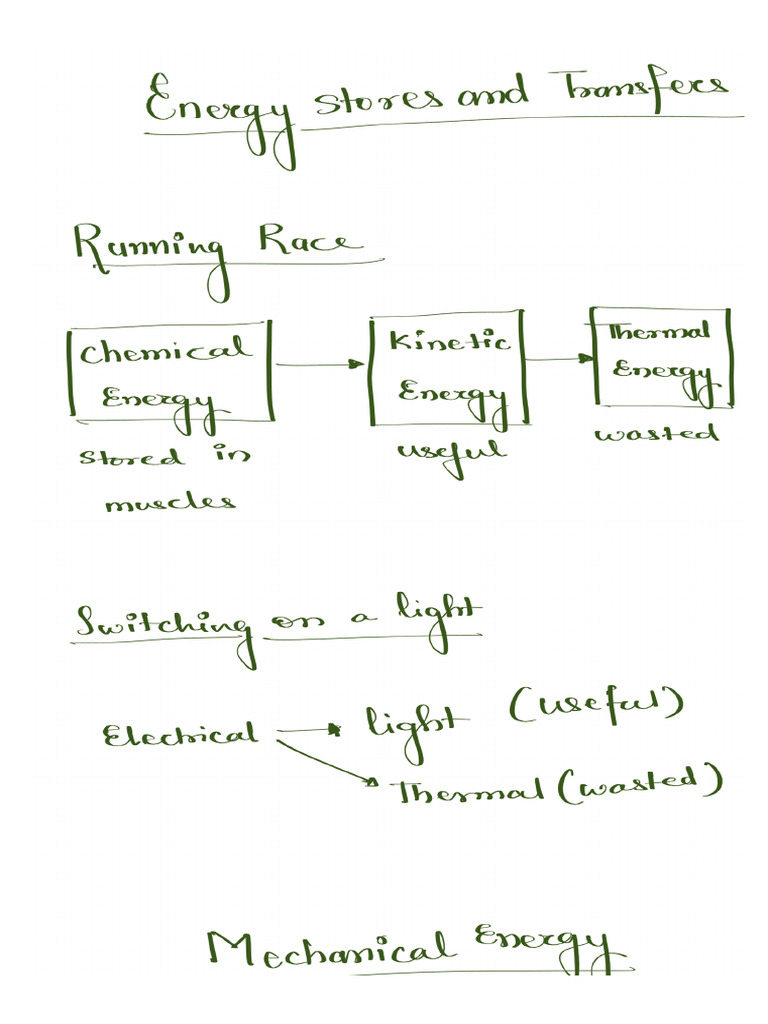 Energy stores and Transfers
Running Race
Chemical Energy
stored in
muscles
Kinetic
Energy
useful
Thermal
Energy
wasted
Switching on a light
Electrical
light (useful)
Thermal (wasted)
Mechanical Energy